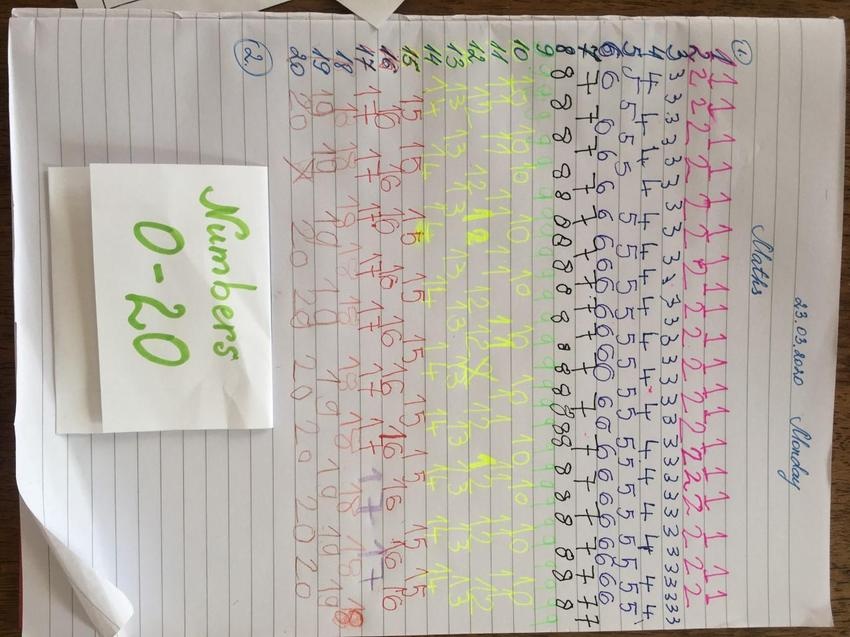 23.03.2020 Monday
Maths
1.
1 1 1 1 1 1 1 1 1 1 1 1 1 1 1 1 1 1 1
2 2 2 2 2 2 2 2 2 2 2 2 2 2 2 2 2 2 2
3 3 3 3 3 3 3 3 3 3 3 3 3 3 3 3 3 3 3 3 3 3 3
4 4 4 4 4 4 4 4 4 4 4 4 4 4 4 4 4 4 4 4
5 5 5 5 5 5 5 5 5 5 5 5 5 5 5 5 5 5 5 5
6 6 6 6 6 6 6 6 6 6 6 6 6 6 6 6 6 6 6 6 6
7 7 7 7 7 7 7 7 7 7 7 7 7 7 7 7 7 7 7
8 8 8 8 8 8 8 8 8 8 8 8 8 8 8 8 8 8 8 8
9 9 9 9 9 9 9 9 9 9 9 9 9 9 9 9 9 9 9 9
10 10 10 10 10 10 10 10 10 10 10
11 11 11 11 11 11 11 11 11 11
12 12 12 12 12 12 12 12 12
13 13 13 13 13 13 13 13 13 13
14 14 14 14 14 14 14 14 14
15 15 15 15 15 15 15 15 15 15
16 16 16 16 16 16 16 16 16 16
17 17 17 17 17 17 17 17 17 17
18 18 18 18 18 18 18 18 18 18
19 19 19 19 19 19 19 19 19
20 20 20 20 20 20 20 20
2.
Numbers
0-20